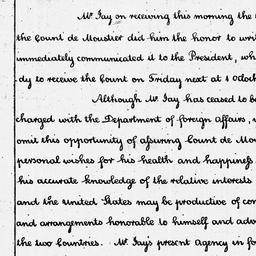 Mr. Jay on receiving this morning the
the Count de Moustier did him the honor to wri
immediately communicated it to the President, wh
dy to receive the Count on Friday next at 1 oCloc
Although Mr. Jay has ceased to b
charged with the Department of foreign affairs,
omit this opportunity of assuring Count de Mou
personal wishes for his health and happiness
his accurate knowledge of the relative interests
and the united States may be productive of con
and arrangements honorable to himself and adv
the two Countries. Mr. Jay's present Agency in fo